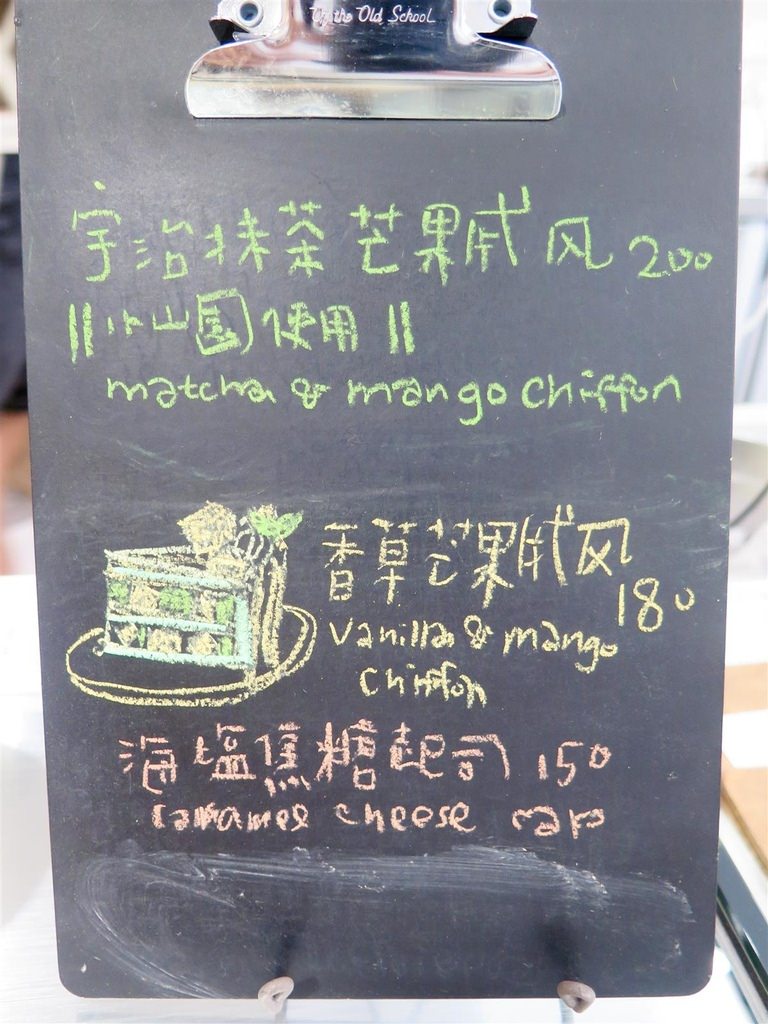 By the Old School
宇治抹茶芒果戚风 200
||小山園使用||
matcha & mango chiffon
香草芒果戚风
180
vanilla & mango
chiffon
海塩焦糖起司 150
caramel cheese